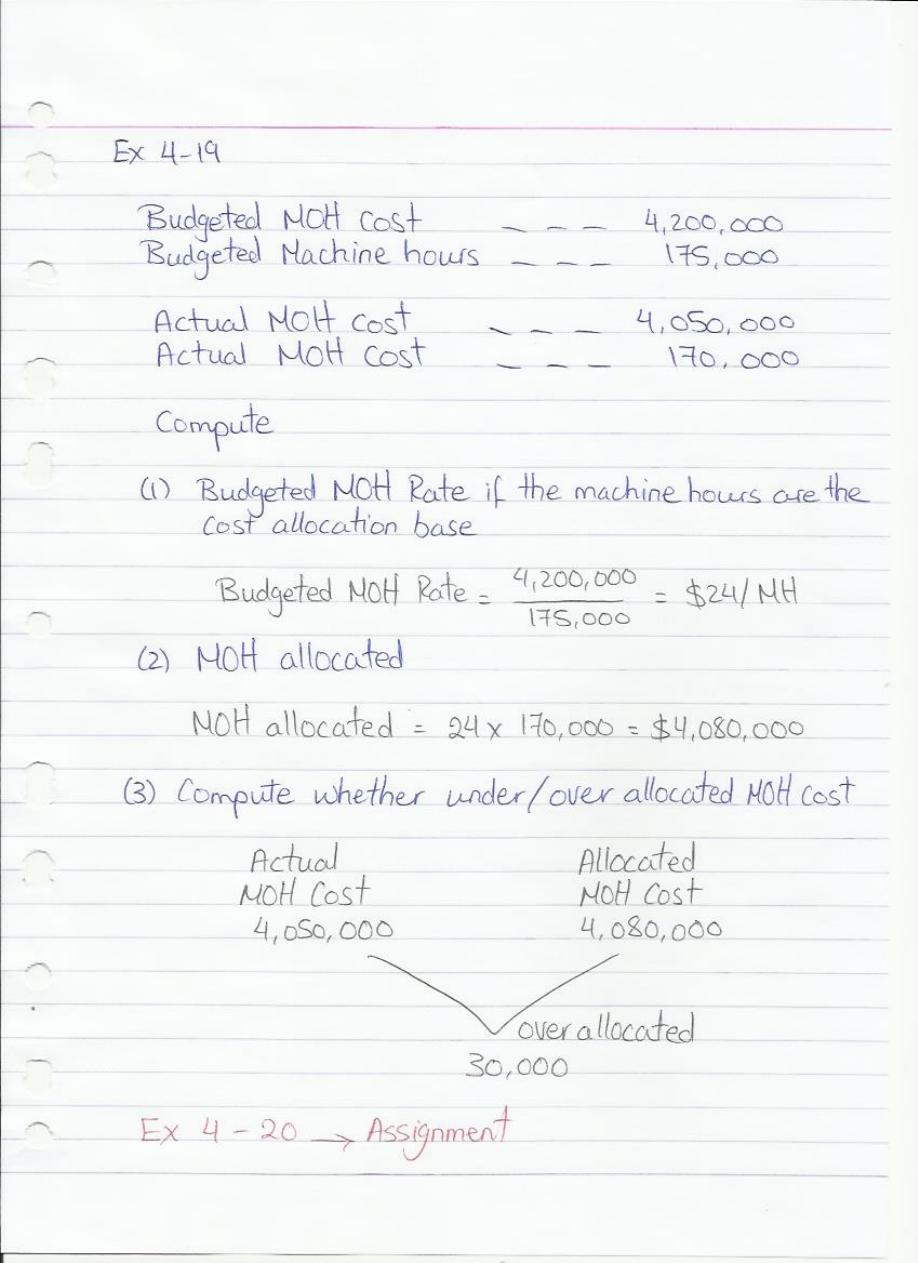 Ex 4-19
Budgeted MOH Cost _ _ _ 4,200,000
Budgeted Machine hours _ _ _ 175,000
Actual MOH Cost _ _ _ 4,050,000
Actual MOH Cost _ _ _ 170,000
Compute
(1) Budgeted MOH Rate if the machine hours are the
cost allocation base
Budgeted MOH Rate = 4,200,000 / 175,000 = $24/MH
(2) MOH allocated
MOH allocated = 24 x 170,000 = $4,080,000
(3) Compute whether under/over allocated MOH cost
Actual Allocated
MOH Cost MOH Cost
4,050,000 4,080,000
over allocated
30,000
Ex 4-20 → Assignment